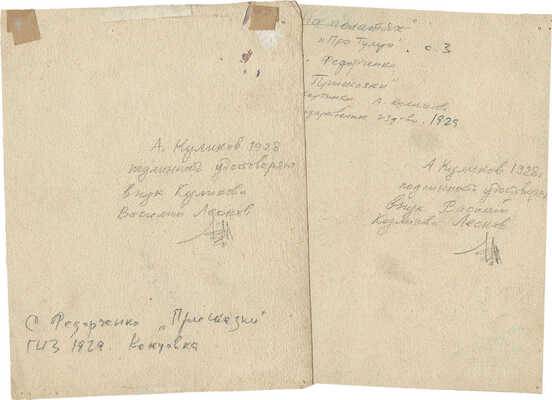 А. Куликов 1928
подлинность удостоверяю
внук Куликова
Василий Леонов
С Федорченко „Присказки"
ГИЗ 1929. Концовка
На полатях"
„Про Тулуп". с. 3
Федорченко
Присказки"
картинки А. Куликова
Государственное изд-во. 1929
А Куликов 1928г
подлинность удостоверяю
Внук Василий
Куликова Леонов